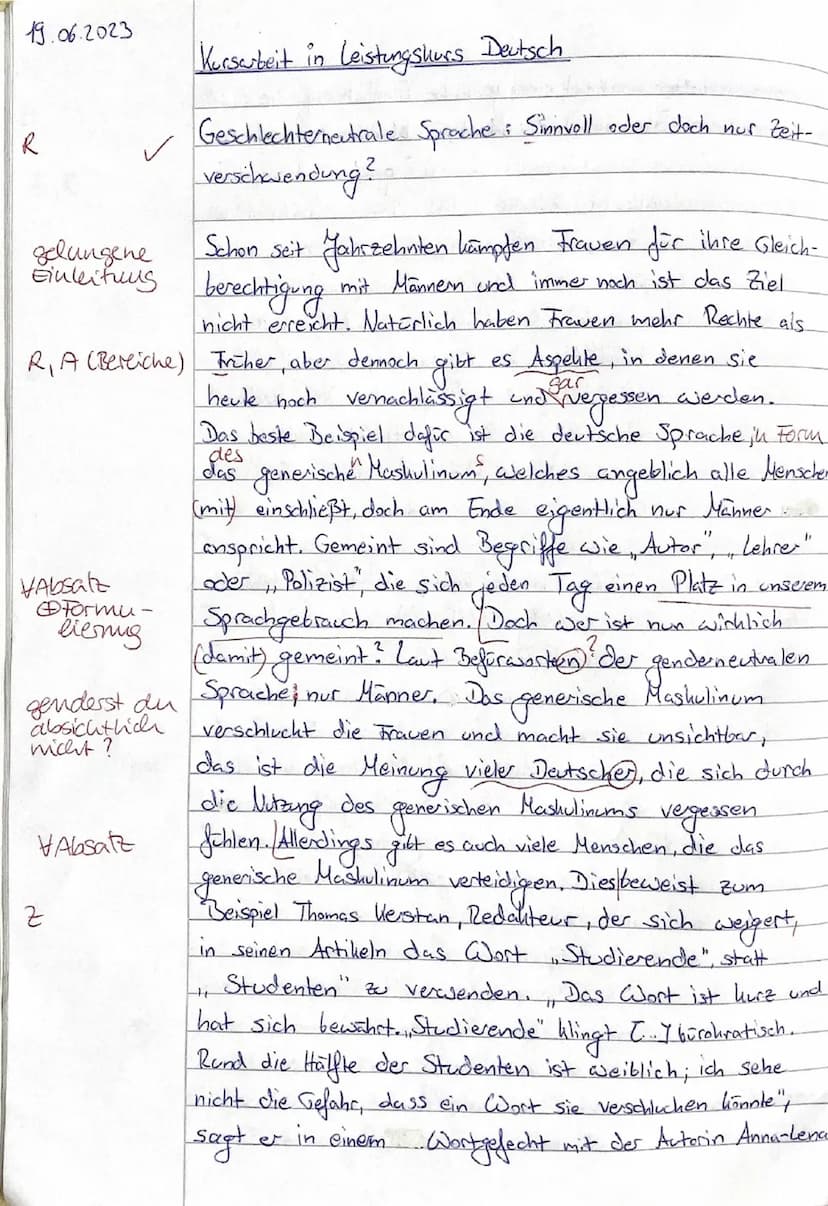 19.06.2023
Kursarbeit in Leistungskurs Deutsch
R ✓ Geschlechterneutrale Sprache: Sinnvoll oder doch nur Zeit-
verschwendung?
gelungene Einleitung
Schon seit Jahrzehnten kämpfen Frauen für ihre Gleich-
berechtigung mit Männern und immer noch ist das Ziel
nicht erreicht. Natürlich haben Frauen mehr Rechte als
R, A (Bereiche) Früher, aber dennoch gibt es Aspekte, in denen sie
heute noch vernachlässigt und gar vergessen werden.
Das beste Beispiel dafür ist die deutsche Sprache, in Form
des
das generischen Maskulinums, welches angeblich alle Menschen
(mit) einschließt, doch am Ende eigentlich nur Männer
anspricht. Gemeint sind Begriffe wie „Autor", „Lehrer"
∀Absatz oder „Polizist", die sich jeden Tag einen Platz in unserem
⊕Formu-
lierung
Sprachgebrauch machen. [Doch wer ist nun wirklich
(damit) gemeint? Laut Befürworten? der genderneutralen
genderst du
absichtlich
nicht?
Sprache, nur Männer. Das generische Maskulinum
verschluckt die Frauen und macht sie unsichtbar,
das ist die Meinung vieler Deutscher, die sich durch
die Nutzung des generischen Maskulinums vergessen
∀Absatz fühlen. [Allerdings gibt es auch viele Menschen, die das
generische Maskulinum verteidigen. Dies|beweist zum
Z Beispiel Thomas Kerstan, Redakteur, der sich weigert,
in seinen Artikeln das Wort „Studierende", statt
„Studenten" zu verwenden. „Das Wort ist kurz und
hat sich bewährt. „Studierende" klingt [...] bürokratisch.
Rund die Hälfte der Studenten ist weiblich; ich sehe
nicht die Gefahr, dass ein Wort sie verschlucken könnte",
sagt er in einem Wortgefecht mit der Autorin Anna-Lena